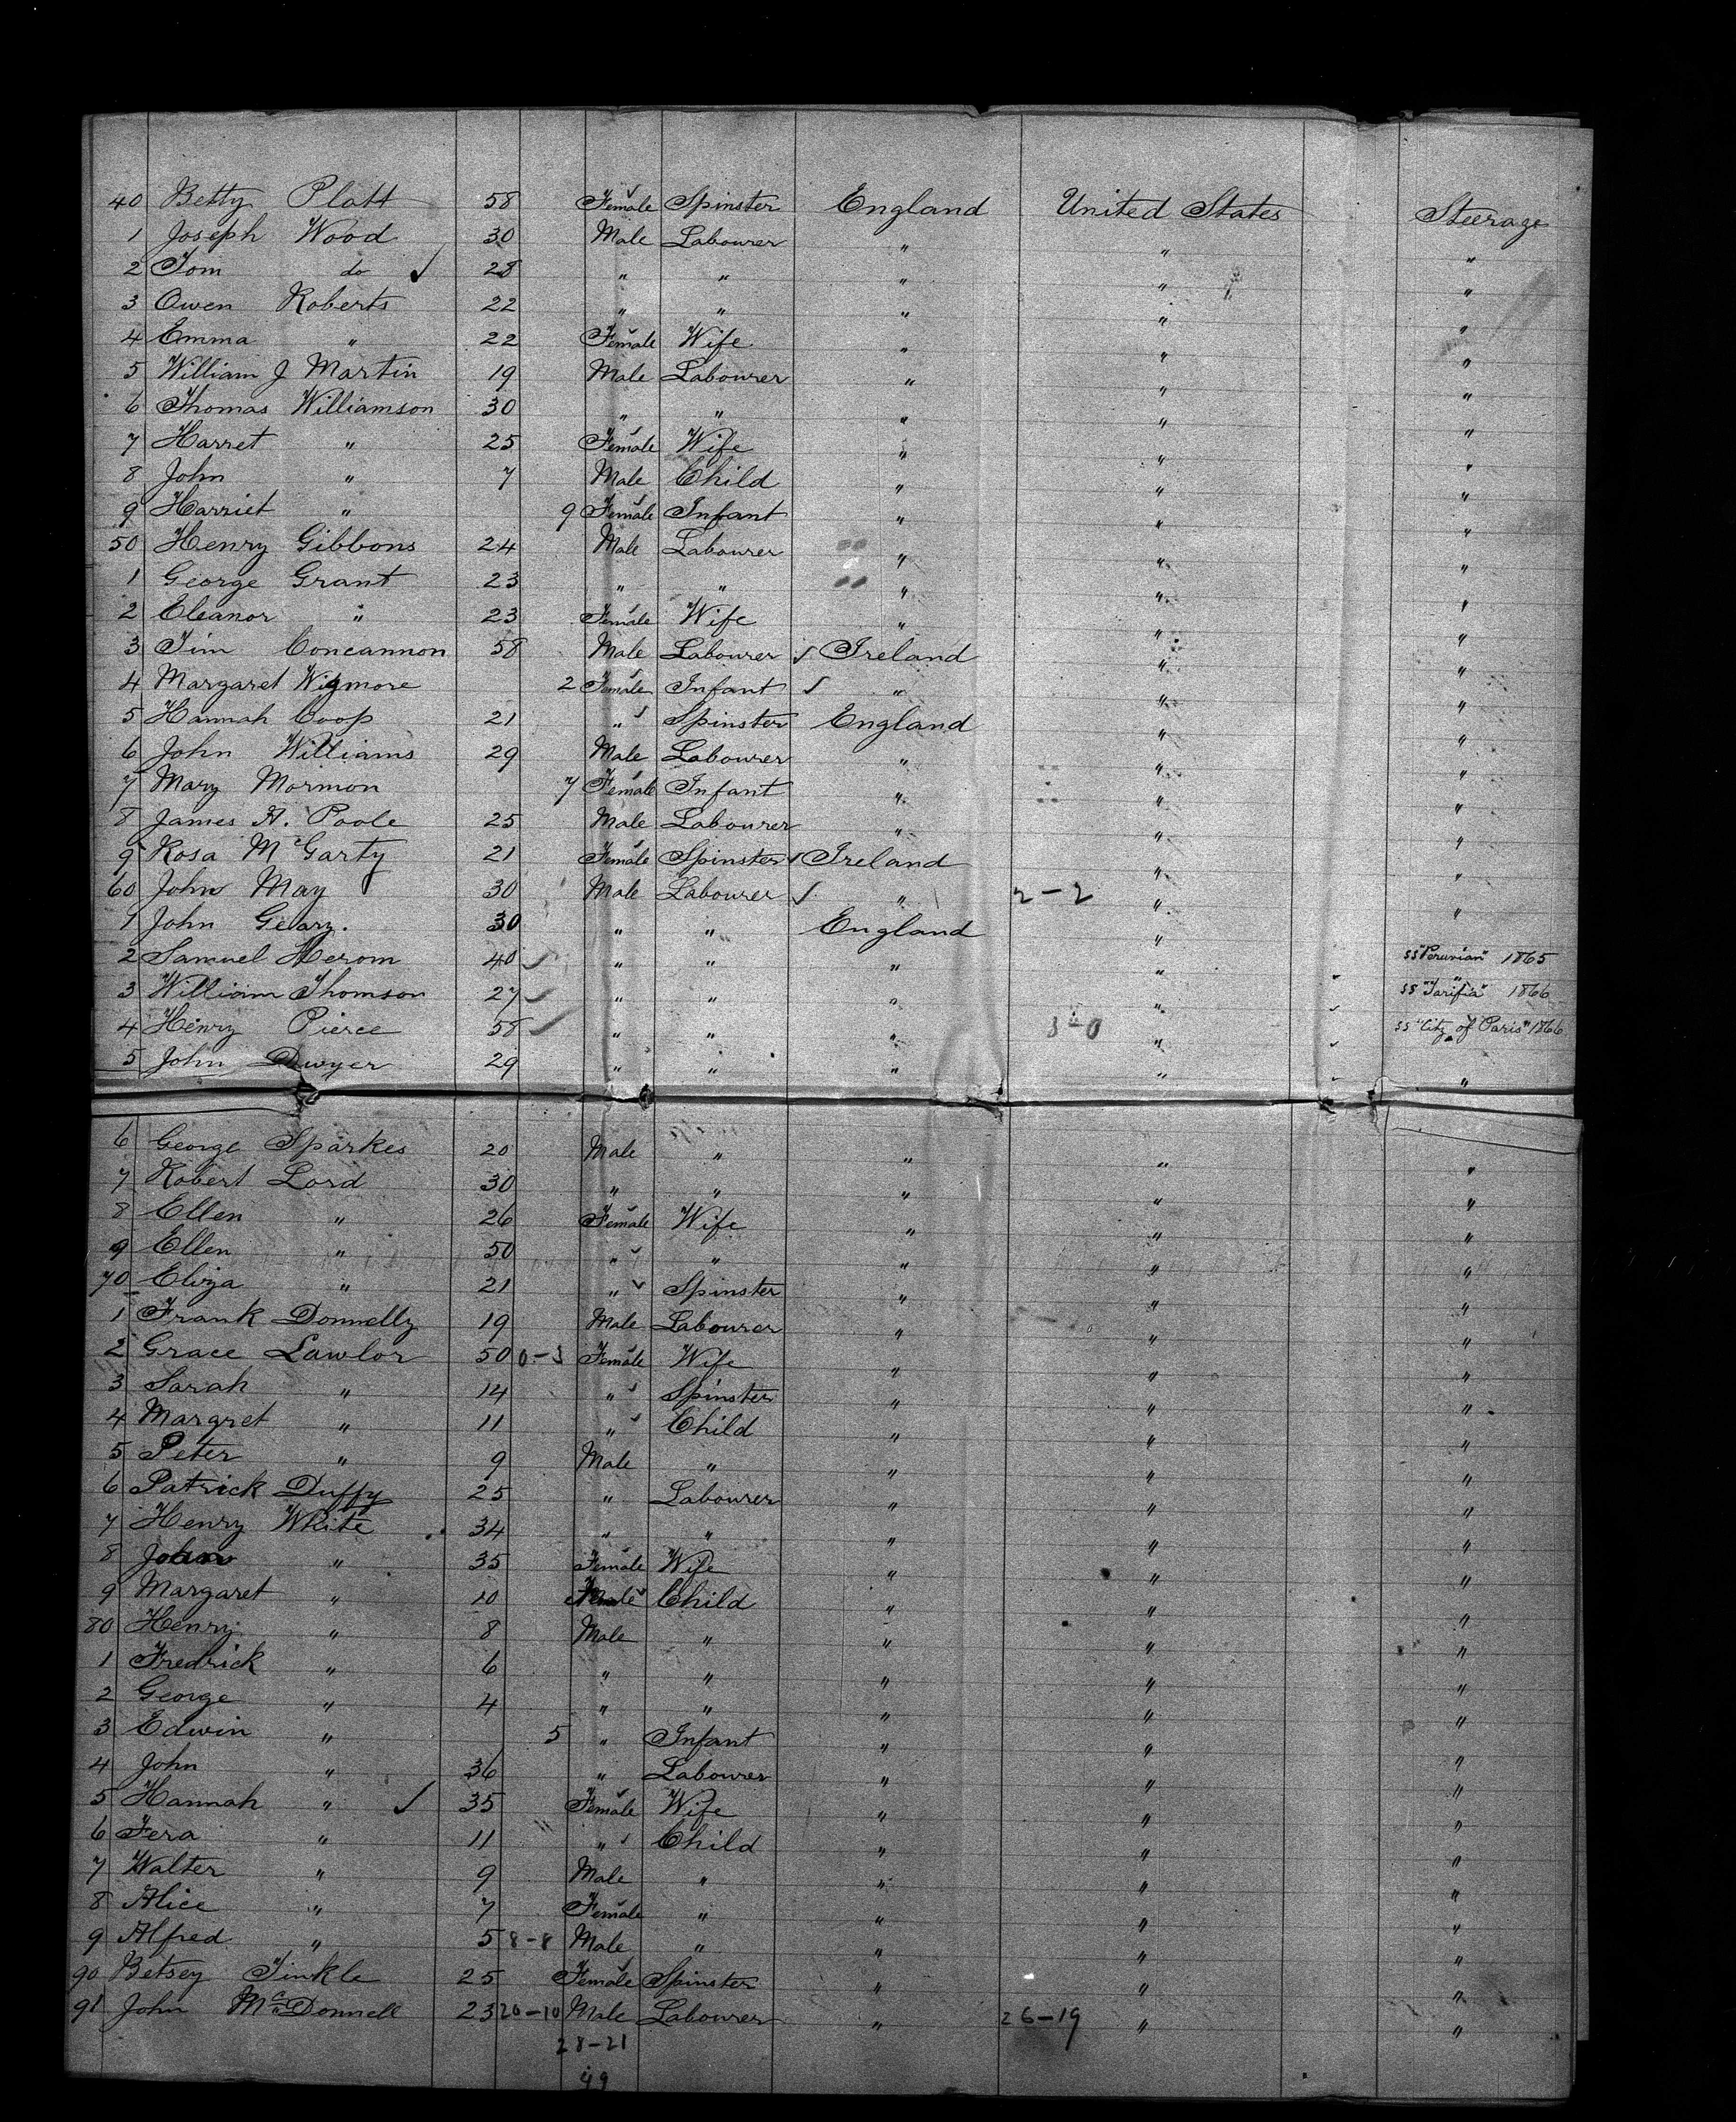 40 Betty Platt 58 Female Spinster England United States Steerage
1 Joseph Wood 30 Male Labourer " " "
2 Tom do ✓ 28 " " " " "
3 Owen Roberts 22 " " " " "
4 Emma " 22 Female Wife " " "
5 William J Martin 19 Male Labourer " " "
6 Thomas Williamson 30 " " " " "
7 Harret " 25 Female Wife " " "
8 John " 7 Male Child " " "
9 Harriet " 9 Female Infant " " "
50 Henry Gibbons 24 Male Labourer " " "
1 George Grant 23 " " " " "
2 Eleanor " 23 Female Wife " " "
3 Tim Concannon 58 Male Labourer ✓ Ireland " "
4 Margaret Wigmore 2 Female Infant ✓ " " "
5 Hannah Coop 21 " Spinster England " "
6 John Williams 29 Male Labourer " " "
7 Mary Mormon 7 Female Infant " " "
8 James H. Poole 25 Male Labourer " " "
9 Rosa McGarty 21 Female Spinster ✓ Ireland " "
60 John May 30 Male Labourer ✓ " 2-2 " "
1 John Geary. 30 " " England "
2 Samuel Herom 40 ✓ " " " " SS "Peruvian" 1865
3 William Thomson 27 ✓ " " " " ✓ SS "Tarifia" 1866
4 Henry Pierce 58 ✓ " " " 3-0 " ✓ SS "City of Paris" 1866
5 John Dwyer 29 " " " " "
6 George Sparkes 20 Male " " " "
7 Robert Lord 30 " " " " "
8 Ellen " 26 Female Wife " " "
9 Ellen " 50 " " " " "
70 Eliza " 21 " Spinster " " "
1 Frank Donnelly 19 Male Labourer " " "
2 Grace Lawlor 50 0-3 Female Wife " " "
3 Sarah " 14 " Spinster " " "
4 Margret " 11 " Child " " "
5 Peter " 9 Male " " " "
6 Patrick Duffy 25 " Labourer " " "
7 Henry White 34 " " " " "
8 " 35 Female Wife " " "
9 Margaret " 10 Female Child " " "
80 Henry " 8 Male " " " "
1 Fredrick " 6 " " " " "
2 George " 4 " " " " "
3 Edwin " 5 " Infant " " "
4 John " 36 " Labourer " " "
5 Hannah " ✓ 35 Female Wife " " "
6 Fera " 11 " Child " " "
7 Walter " 9 Male " " " "
8 Alice " 7 Female " " " "
9 Alfred " 5 8-8 Male " " " "
90 Betsey Tinkle 25 Female Spinster " " "
91 John McDonnell 23 20-10 Male Labourer " 26-19 " "
28-21
49